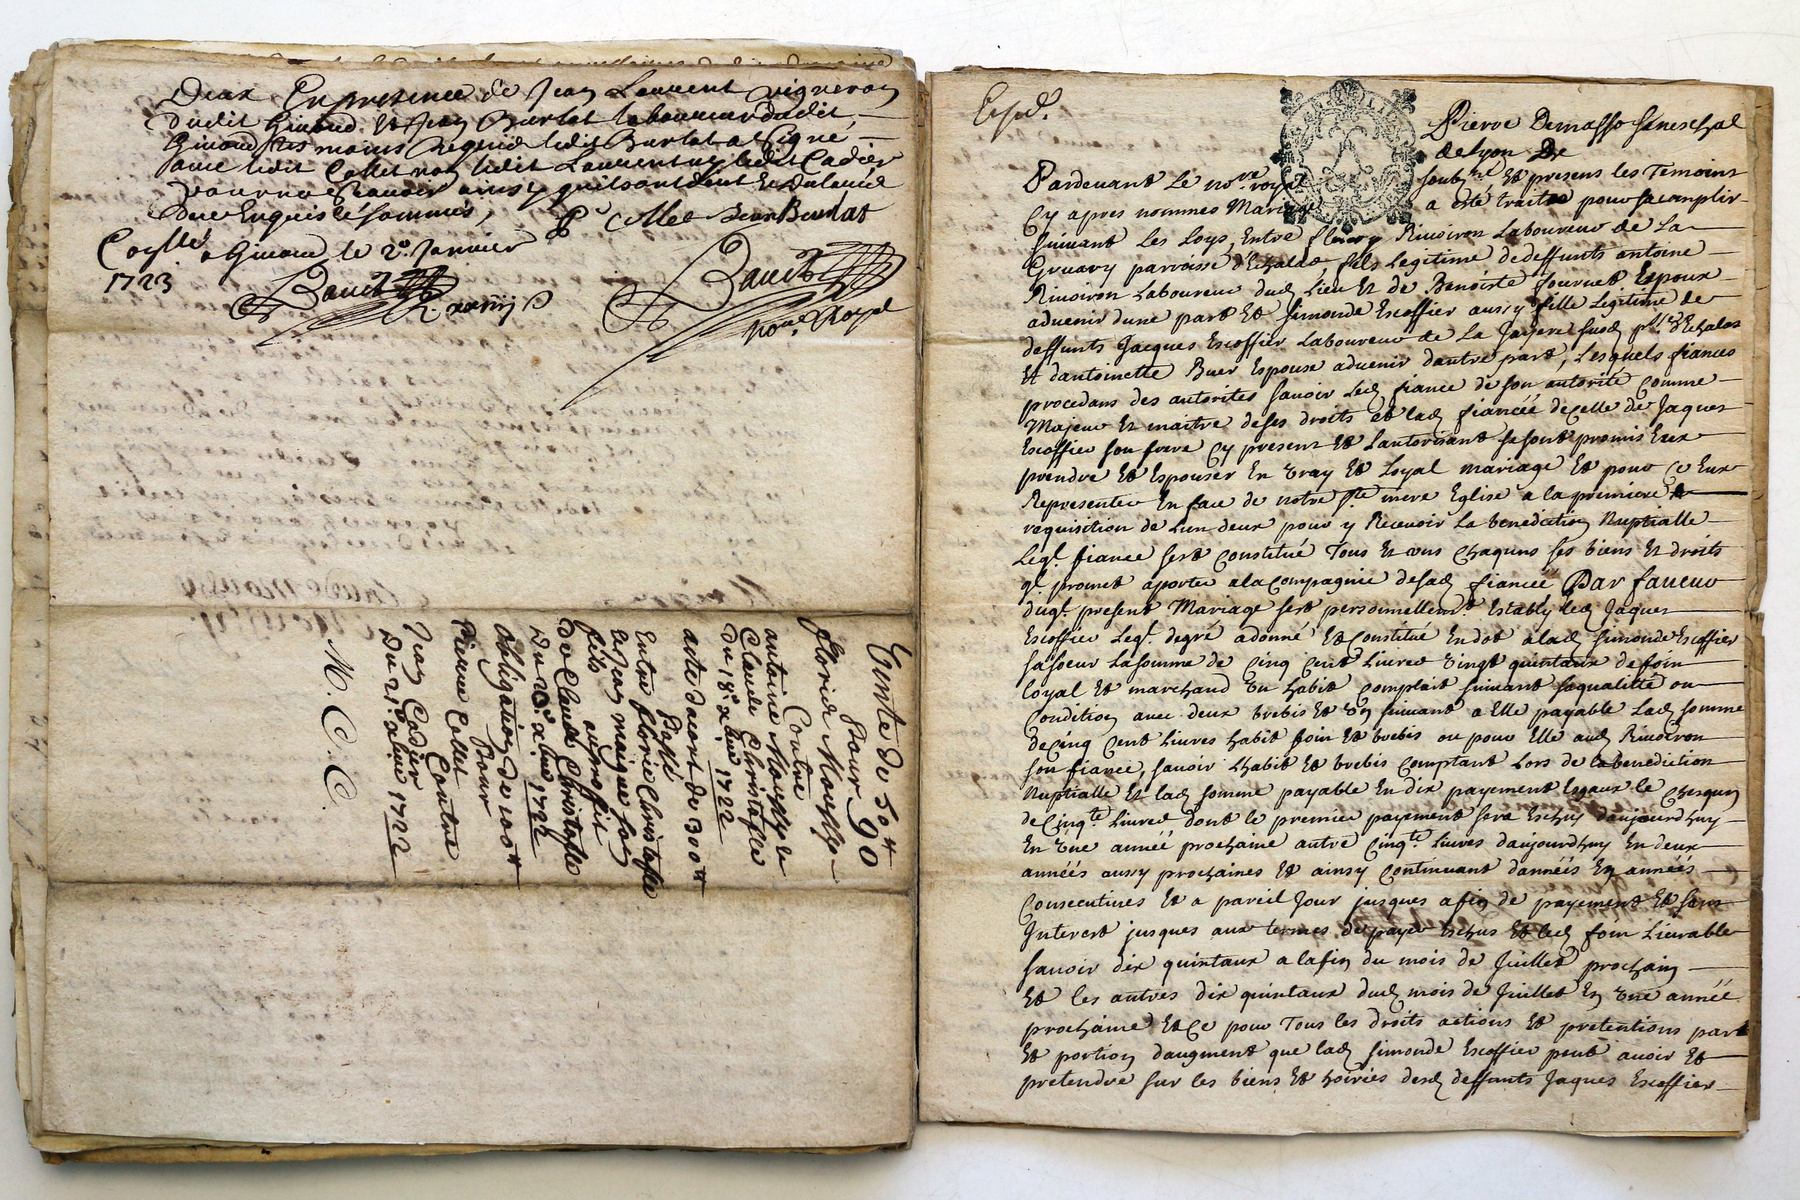 Deux En presence de Jean Laurent vigneron
dudit Givord Et Jean Burlat laboureur dudit
Givord tesmoins requis ledit Burlat a signé
avec ledit Collet non ledit Laurent ny ledit Cadier
pour ne sçavoir ainsy quils ont dit et declaré
de ce Enquis et sommés,
P Collet Jean Burlat
Collé a Givord le 2e Janvier
1723
Baudt
Baudt
nore Royal
Vente de 50#
pour 90
florie Mousse
Contre
antoine Mousse &
Claude Christofle
Du 18e xbre 1722
acte dacord de 300#
Passé
Entre florie Christofle
et Jean maigue son
fils au profit
de Claude Christofle
Du 20e xbre 1722
obligation de 100#
pour
Pierre Collet
Contre
Jean Cadier
Du 29e xbre 1722
M. C. C.
Exped.
Pierre Demasso seneschal
de Lyon De
Pardevant Le nore royal soubné Et presens les Temoins
Cy apres nommés Mariage a esté traitté pour saconplir
suivant Les Loys, Entre fleury Rivoiron Laboureur de La
Gruary parroisse d'Echalas fils legitime de deffunts antoine
Rivoiron Laboureur dud Lieu Et de Benoiste fournet Espoux
advenir dune part Et Simonde Escoffier aussy fille legitime de
deffunts Jacques Escoffier Laboureur de La Jayere susd psse d'Echalas
Et dantoinette Buer Espouse advenir dautre part, Lesquels fiancés
procedans des autorités savoir Led fiancé de son autorité Comme
Majeur Et maitre de ses droits Et lad fiancéé de Celle de Jaques
Escoffier son frere Cy present Et Lautorisant se sont promis Eux
prendre Et Espouser En vray Et Loyal mariage Et pour Ce Eux
Representer En face de notre ste mere Eglise a la premiere
requisition de Lun deux pour y Recevoir La benediction Nuptialle
Leql. fiancé sest Constitué Tous Et uns Chaquns ses biens Et droits
ql. promet aporter a la Compagnie de sad fiancéé Par faveur
duql. present Mariage sest personnellemt. Estably Led Jaques
Escoffier Leql. degré a donné Et Constitué En dot a lad Simonde Escoffier
sa soeur La somme de Cinq Cent Livres vingt quintaux de foin
Loyal Et marchand Un habit Complait suivant sa qualitté ou
Condition avec deux brebis Et Leur suivant a Elle payable Lad somme
de Cinq Cent Livres habit foin Et brebis ou pour Elle aud Rivoiron
son fiancé, savoir Lhabit Et brebis Comptant Lors de la benediction
Nuptialle Et lad somme payable En dix payement Egaux le Chaqun
de Cinqte. Livres dont le premier payement sera Eschus daujourdhuy
En Une année prochaine autre Cinqte Livres daujourdhuy En deux
annéés aussy prochaines Et ainsy Continuant dannéés En annéés
Consecutives Et a pareil Jour jusques a fin de payement Et sans
Interest jusques aux termes de payer Eschus Et led foin Livrable
savoir dix quintaux a la fin du mois de Juillet prochain
Et les autres dix quintaux dud mois de Juillet En Une annéé
prochaine Et Ce pour Tous les droits actions Et pretentions part
Et portion daugment que lad Simonde Escoffier peut avoir Et
pretendre sur les biens Et hoiriés desd deffunts Jaques Escoffier